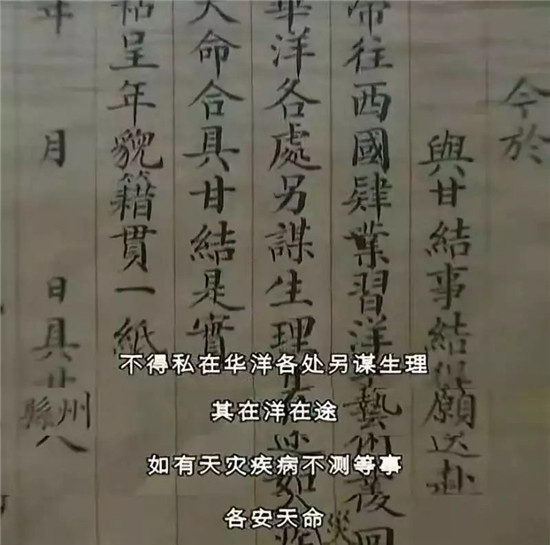 今於
與甘結事結願送赴
帶往西國肆業習洋藝術後回
華洋各處另謀生理
天命合具甘結是實
粘呈年貌籍貫一紙
年 月 日具甘
州縣
不得私在华洋各处另谋生理
其在洋在途
如有天灾疾病不测等事
各安天命